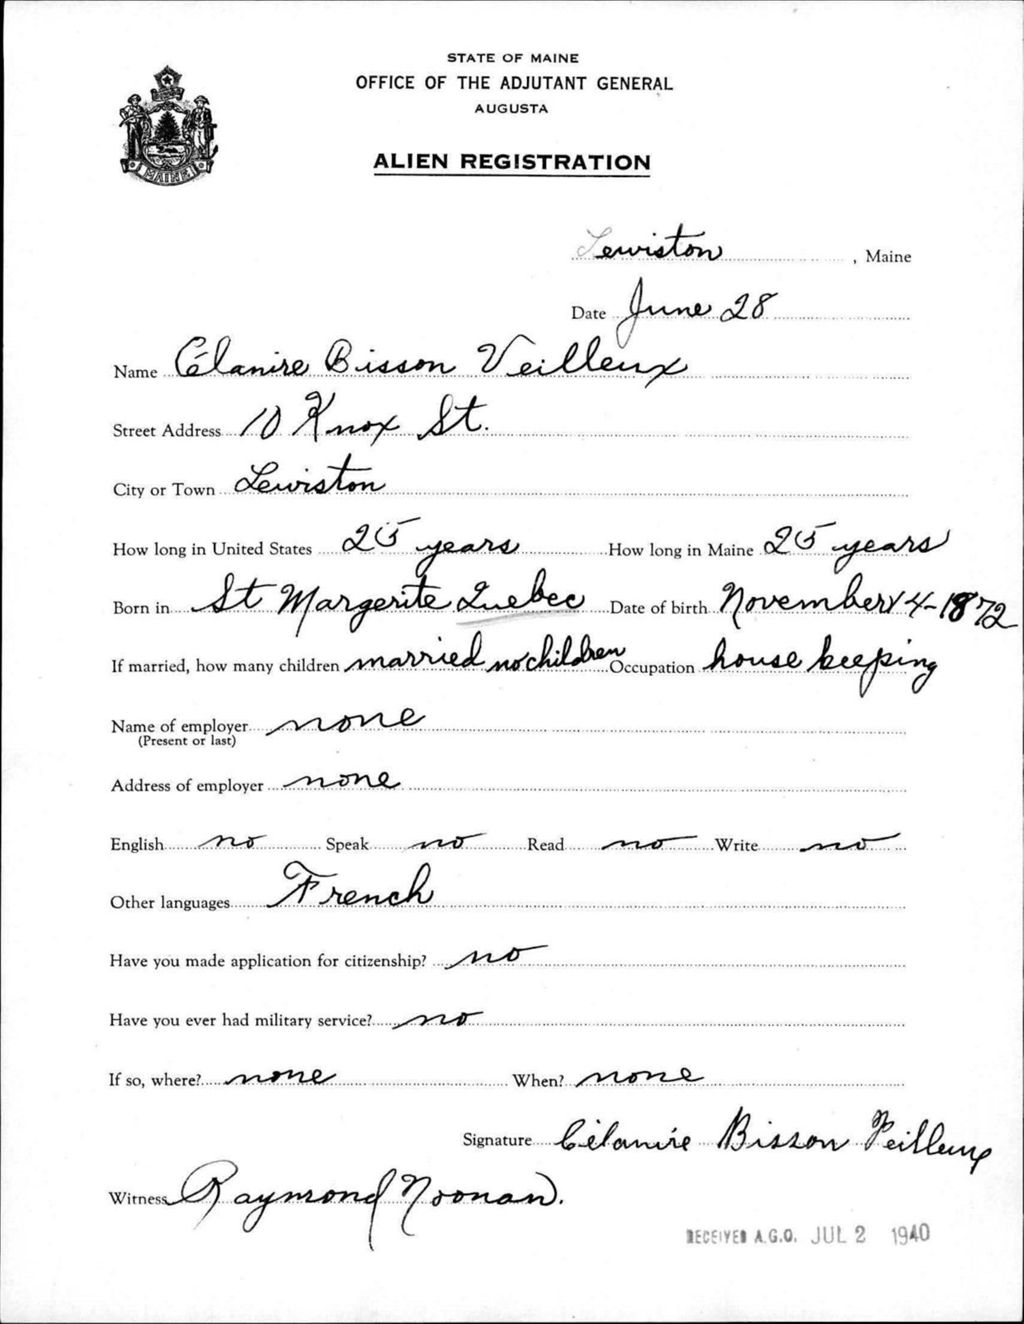 STATE OF MAINE
OFFICE OF THE ADJUTANT GENERAL
AUGUSTA
ALIEN REGISTRATION
MAINE
Lewiston, Maine
Date June 28
Name Célanire Bisson Veilleux
Street Address 10 Knox St.
City or Town Lewiston
How long in United States 25 years How long in Maine 25 years
Born in St Margerite Quebec Date of birth November 4-1872
If married, how many children married no children Occupation house keeping
Name of employer none
(Present or last)
Address of employer none
English no Speak no Read no Write no
Other languages French
Have you made application for citizenship? no
Have you ever had military service? no
If so, where? none When? none
Signature Célanire Bisson Veilleux
Witness Raymond Noonan.
RECEIVED A.G.O. JUL 2 1940